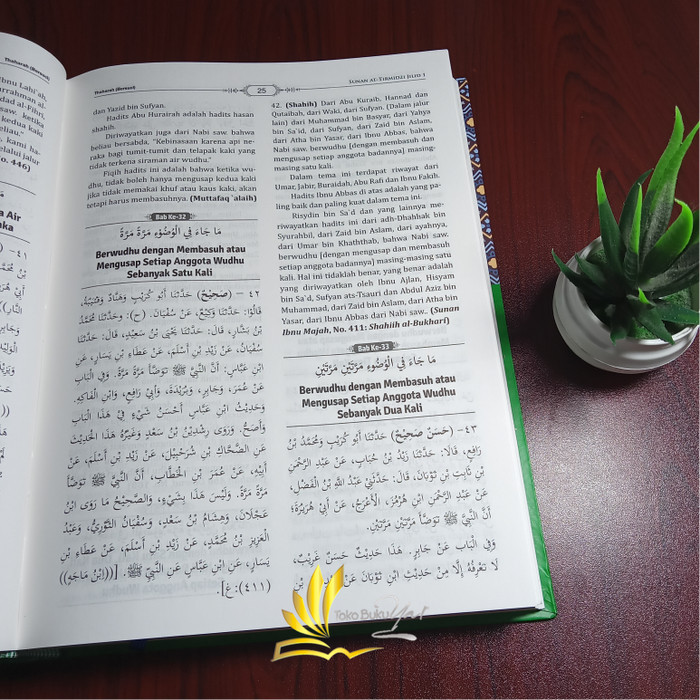 Thaharah (Bersuci)
Ibnu Lahi'ah,
saw. ketika
beliau."
No. 446)
Thaharah (Bersuci)
25
SUNAN AT-TIRMIDZI JILID 1
dan Yazid bin Sufyan.
Hadits Abu Hurairah adalah hadits hasan
shahih.
Diriwayatkan juga dari Nabi saw. bahwa
beliau bersabda, "Kebinasaan karena api ne-
raka bagi tumit-tumit dan telapak kaki yang
tidak terkena siraman air wudhu."
Fiqih hadits ini adalah bahwa ketika wu-
dhu, tidak boleh hanya mengusap kedua kaki
jika tidak memakai khuf atau kaus kaki, akan
tetapi harus membasuhnya. (Muttafaq 'alaih)
Bab Ke-32
مَا جَاءَ فِي الْوُضُوْءِ مَرَّةً مَرَّةً
Berwudhu dengan Membasuh atau
Mengusap Setiap Anggota Wudhu
Sebanyak Satu Kali
٤٢ – (صَحِيْحٌ) حَدَّثَنَا أَبُو كُرَيْبٍ وَهَنَّادٌ وَقُتَيْبَةُ،
قَالُوا: حَدَّثَنَا وَكِيْعٌ، عَنْ سُفْيَانَ. (ح)، وحَدَّثَنَا مُحَمَّدُ
بْنُ بَشَّارٍ، قَالَ: حَدَّثَنَا يَحْيَى بْنُ سَعِيْدٍ، قَالَ: حَدَّثَنَا
سُفْيَانُ، عَنْ زَيْدِ بْنِ أَسْلَمَ، عَنْ عَطَاءِ بْنِ يَسَارٍ، عَنِ
ابْنِ عَبَّاسٍ؛ أَنَّ النَّبِيَّ ﷺ تَوَضَّأَ مَرَّةً مَرَّةً. وَفِي الْبَاب
عَنْ عُمَرَ، وَجَابِرٍ، وَبُرَيْدَةَ، وَأَبِي رَافِعٍ، وَابْنِ الْفَاكِهِ.
وَحَدِيْثُ ابْنِ عَبَّاسٍ أَحْسَنُ شَيْءٍ فِيْ هَذَا الْبَابِ
وَأَصَحُّ. وَرَوَى رِشْدِيْنُ بْنُ سَعْدٍ وَغَيْرُهُ هَذَا الْحَدِيْثَ
عَنِ الضَّحَّاكِ بْنِ شُرَحْبِيْلَ، عَنْ زَيْدِ بْنِ أَسْلَمَ، عَنْ
أَبِيْهِ، عَنْ عُمَرَ بْنِ الْخَطَّابِ، أَنَّ النَّبِيَّ ﷺ تَوَضَّأَ
مَرَّةً مَرَّةً. وَلَيْسَ هَذَا بِشَيْءٍ، وَالصَّحِيْحُ مَا رَوَى ابْنُ
عَجْلَانَ، وَهِشَامُ بْنُ سَعْدٍ، وَسُفْيَانُ الثَّوْرِيُّ، وَعَبْدُ
الْعَزِيْزِ بْنُ مُحَمَّدٍ، عَنْ زَيْدِ بْنِ أَسْلَمَ، عَنْ عَطَاءِ بْنِ
يَسَارٍ، عَنِ ابْنِ عَبَّاسٍ عَنِ النَّبِيِّ ﷺ. [((ابْنُ مَاجَه))
(٤١١): غ].
42. (Shahih) Dari Abu Kuraib, Hannad dan
Qutaibah, dari Waki, dari Sufyan. (Dalam jalur
lain) dari Muhammad bin Basyar, dari Yahya
bin Sa'id, dari Sufyan, dari Zaid bin Aslam,
dari Atha bin Yasar, dari Ibnu Abbas, bahwa
Nabi saw. berwudhu [dengan membasuh dan
mengusap setiap anggota badannya] masing-
masing satu kali.
Dalam tema ini terdapat riwayat dari
Umar, Jabir, Buraidah, Abu Rafi dan Ibnu Fakih.
Hadits Ibnu Abbas di atas adalah yang pa-
ling baik dan paling kuat dalam tema ini.
Risydin bin Sa'd dan yang lainnya me-
riwayatkan hadits ini dari adh-Dhahhak bin
Syurahbil, dari Zaid bin Aslam, dari ayahnya,
dari Umar bin Khaththab, bahwa Nabi saw.
berwudhu [dengan mengusap dan membasuh
setiap anggota badannya] masing-masing satu
kali. Hal ini tidaklah benar, yang benar adalah
yang diriwayatkan oleh Ibnu Ajlan, Hisyam
bin Sa'd, Sufyan ats-Tsauri dan Abdul Aziz bin
Muhammad, dari Zaid bin Aslam, dari Atha bin
Yasar, dari Ibnu Abbas dari Nabi saw.. (Sunan
Ibnu Majah, No. 411: Shahiih al-Bukhari)
Bab Ke-33
مَا جَاءَ فِي الْوُضُوْءِ مَرَّتَيْنِ مَرَّتَيْنِ
Berwudhu dengan Membasuh atau
Mengusap Setiap Anggota Wudhu
Sebanyak Dua Kali
٤٣– (حَسَنٌ صَحِيْحٌ) حَدَّثَنَا أَبُو كُرَيْبٍ وَمُحَمَّدُ بْنُ
رَافِعٍ، قَالَا: حَدَّثَنَا زَيْدُ بْنُ حُبَابٍ، عَنْ عَبْدِ الرَّحْمَنِ
بْنِ ثَابِتِ بْنِ ثَوْبَانَ، قَالَ: حَدَّثَنِيْ عَبْدُ اللَّهِ بْنُ الْفَضْلِ،
عَنْ عَبْدِ الرَّحْمَنِ ابْنِ هُرْمُزَ، الْأَعْرَجُ، عَنْ أَبِي هُرَيْرَةَ؛
أَنَّ النَّبِيَّ ﷺ تَوَضَّأَ مَرَّتَيْنِ مَرَّتَيْنِ.
وَفِي الْبَاب عَنْ جَابِرٍ. هَذَا حَدِيْثٌ حَسَنٌ غَرِيْبٌ،
لَا نَعْرِفُهُ إِلَّا مِنْ حَدِيْثِ ابْنِ ثَوْبَانَ عَنْ عَبْدِ اللَّهِ بْنِ
Toko Buku